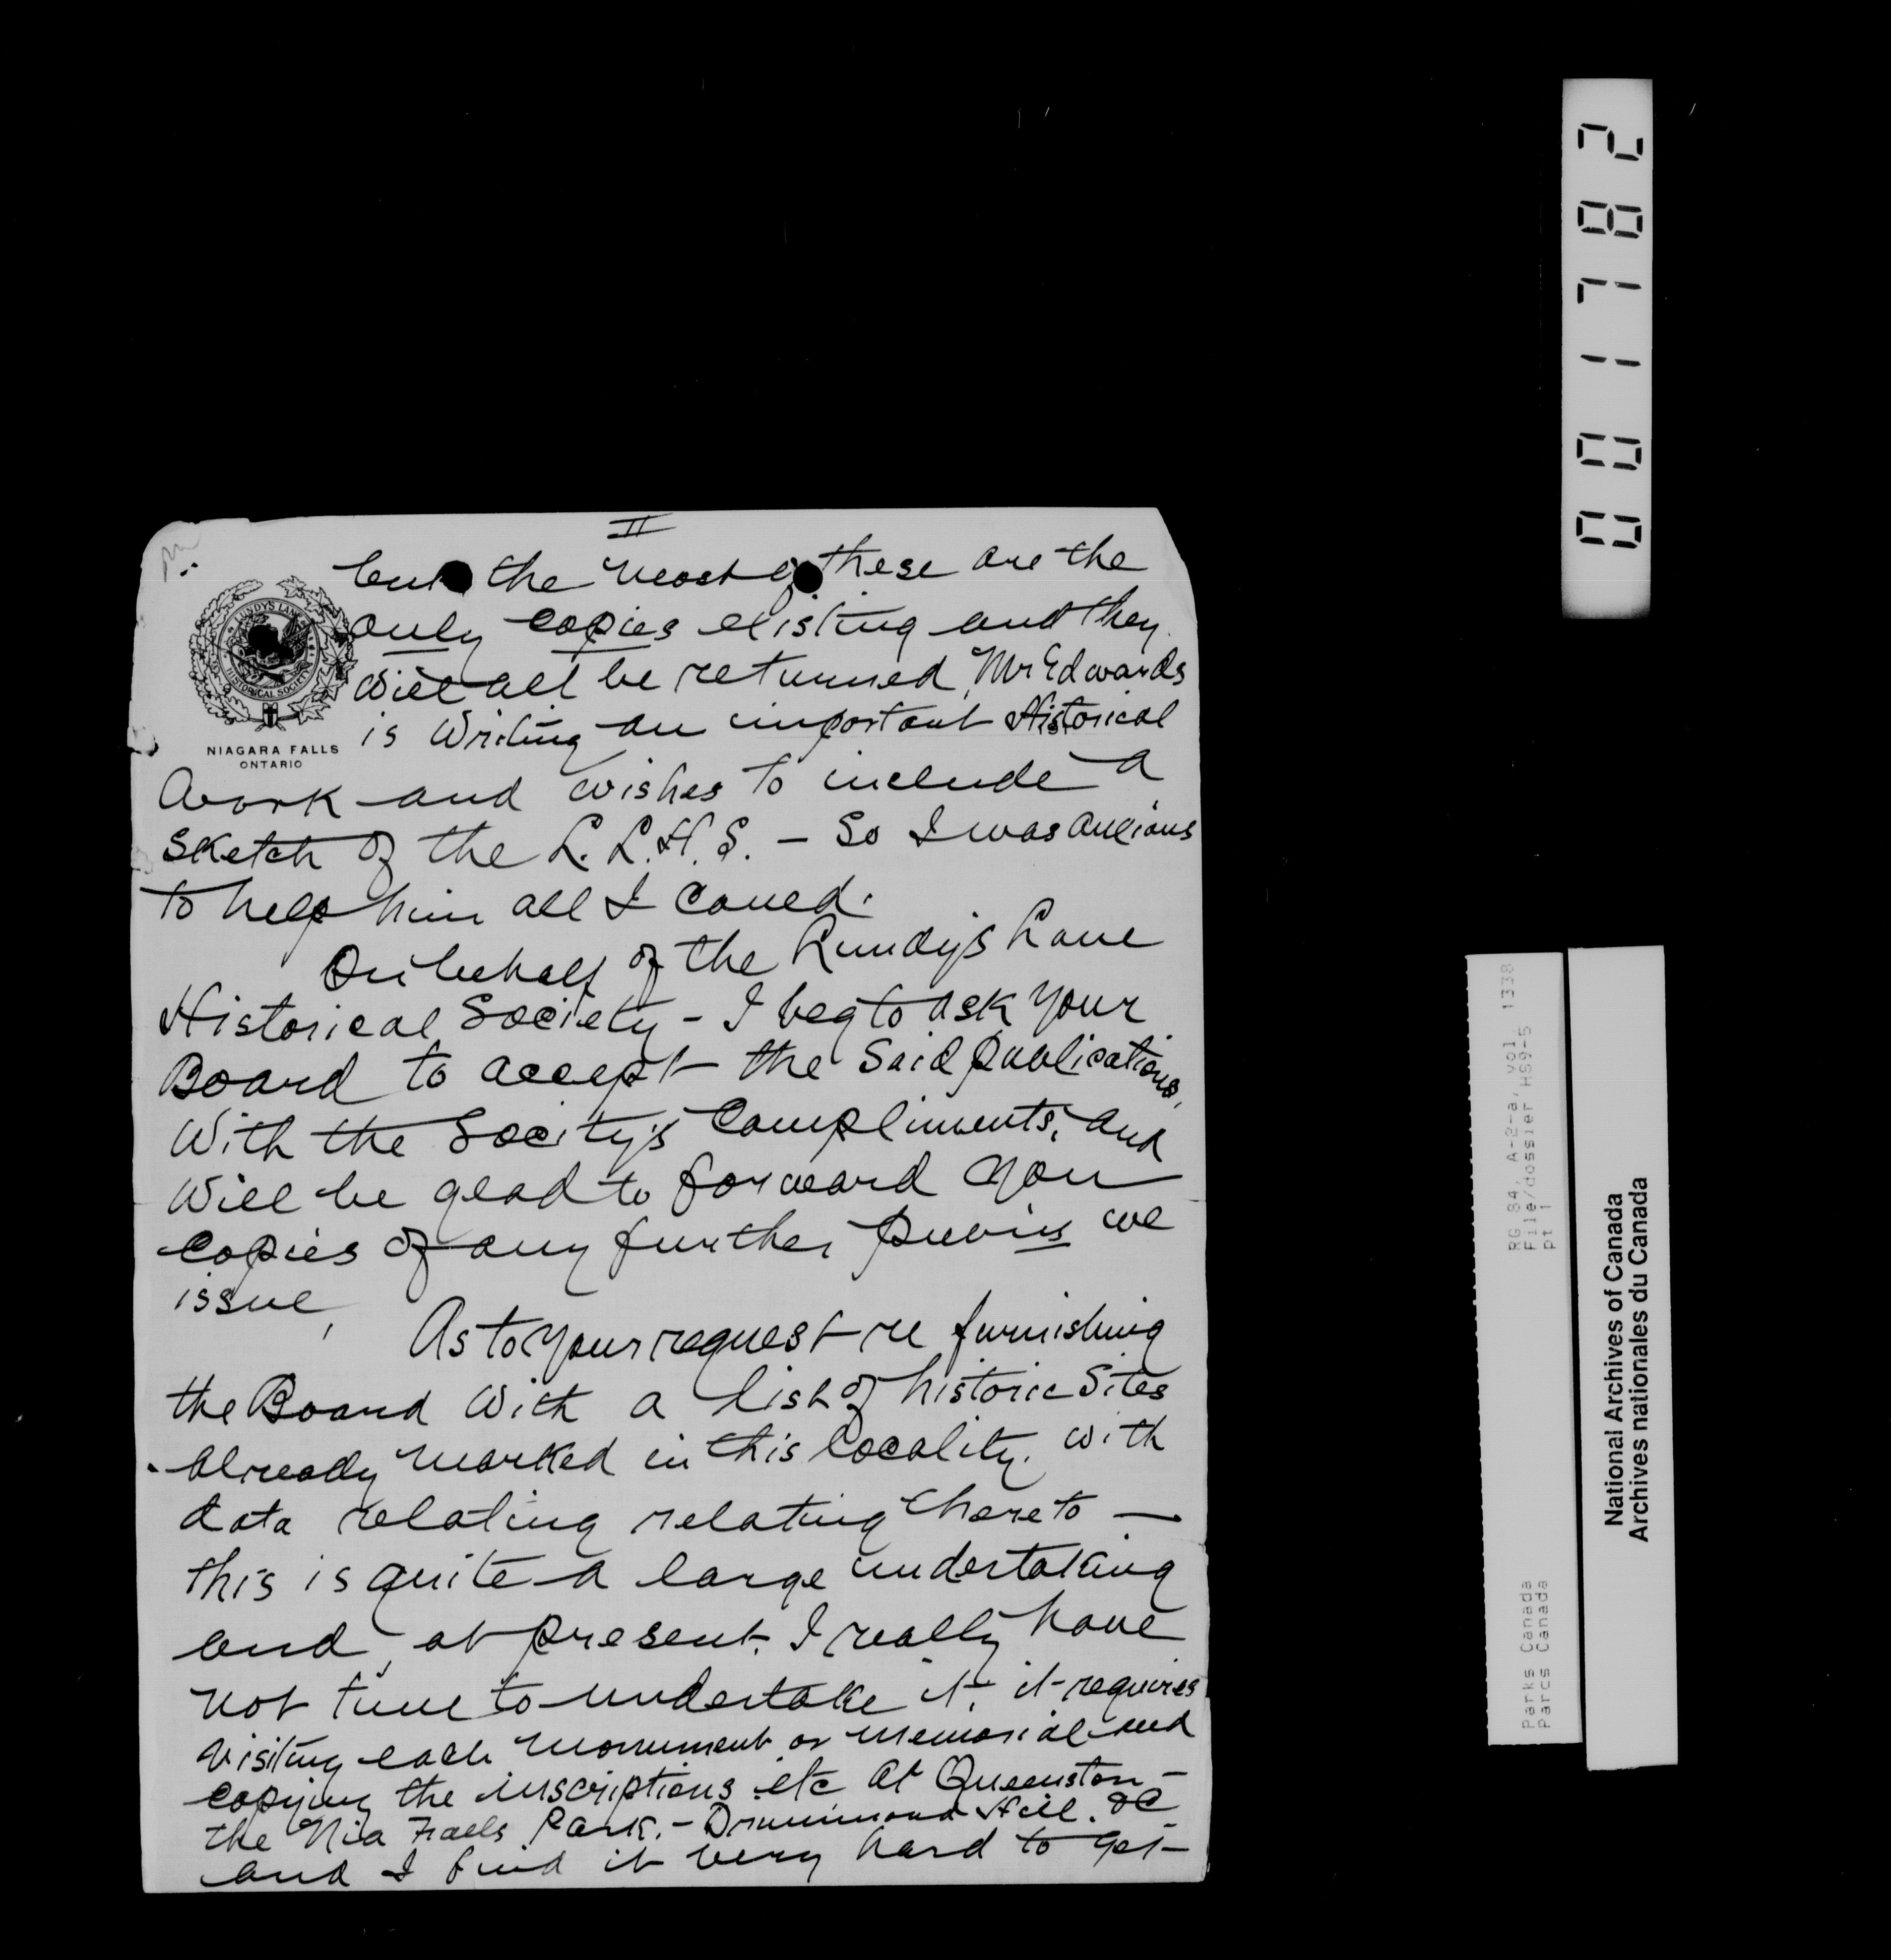 II
but the most of these are the
only copies existing and they
will all be returned, Mr Edwards
is writing an important Historical
work and wishes to include a
sketch of the L. L. H. S. - So I was anxious
to help him all I could.
On behalf of the Lundy's Lane
Historical Society - I beg to ask your
Board to accept the said publications,
with the Socity's compliments, and
will be glad to forward you
copies of any further pubns we
issue,
As to your request re furnishing
the Board with a list of historic sites
already marked in this locality. with
data relating relating thereto —
this is quite a large undertaking
and, at present, I really have
not time to undertake it, it requires
visiting each monument or memorial and
copying the inscriptions etc at Queenston -
the Nia Falls Park. - Drummond Hill. &c
and I find it very hard to get
LUNDY'S LANE
HISTORICAL SOCIETY
NIAGARA FALLS
ONTARIO
001782
RG 84, A-2-a, vol. 1338
File/dossier HS9-5
pt 1
Parks Canada
Parcs Canada
National Archives of Canada
Archives nationales du Canada